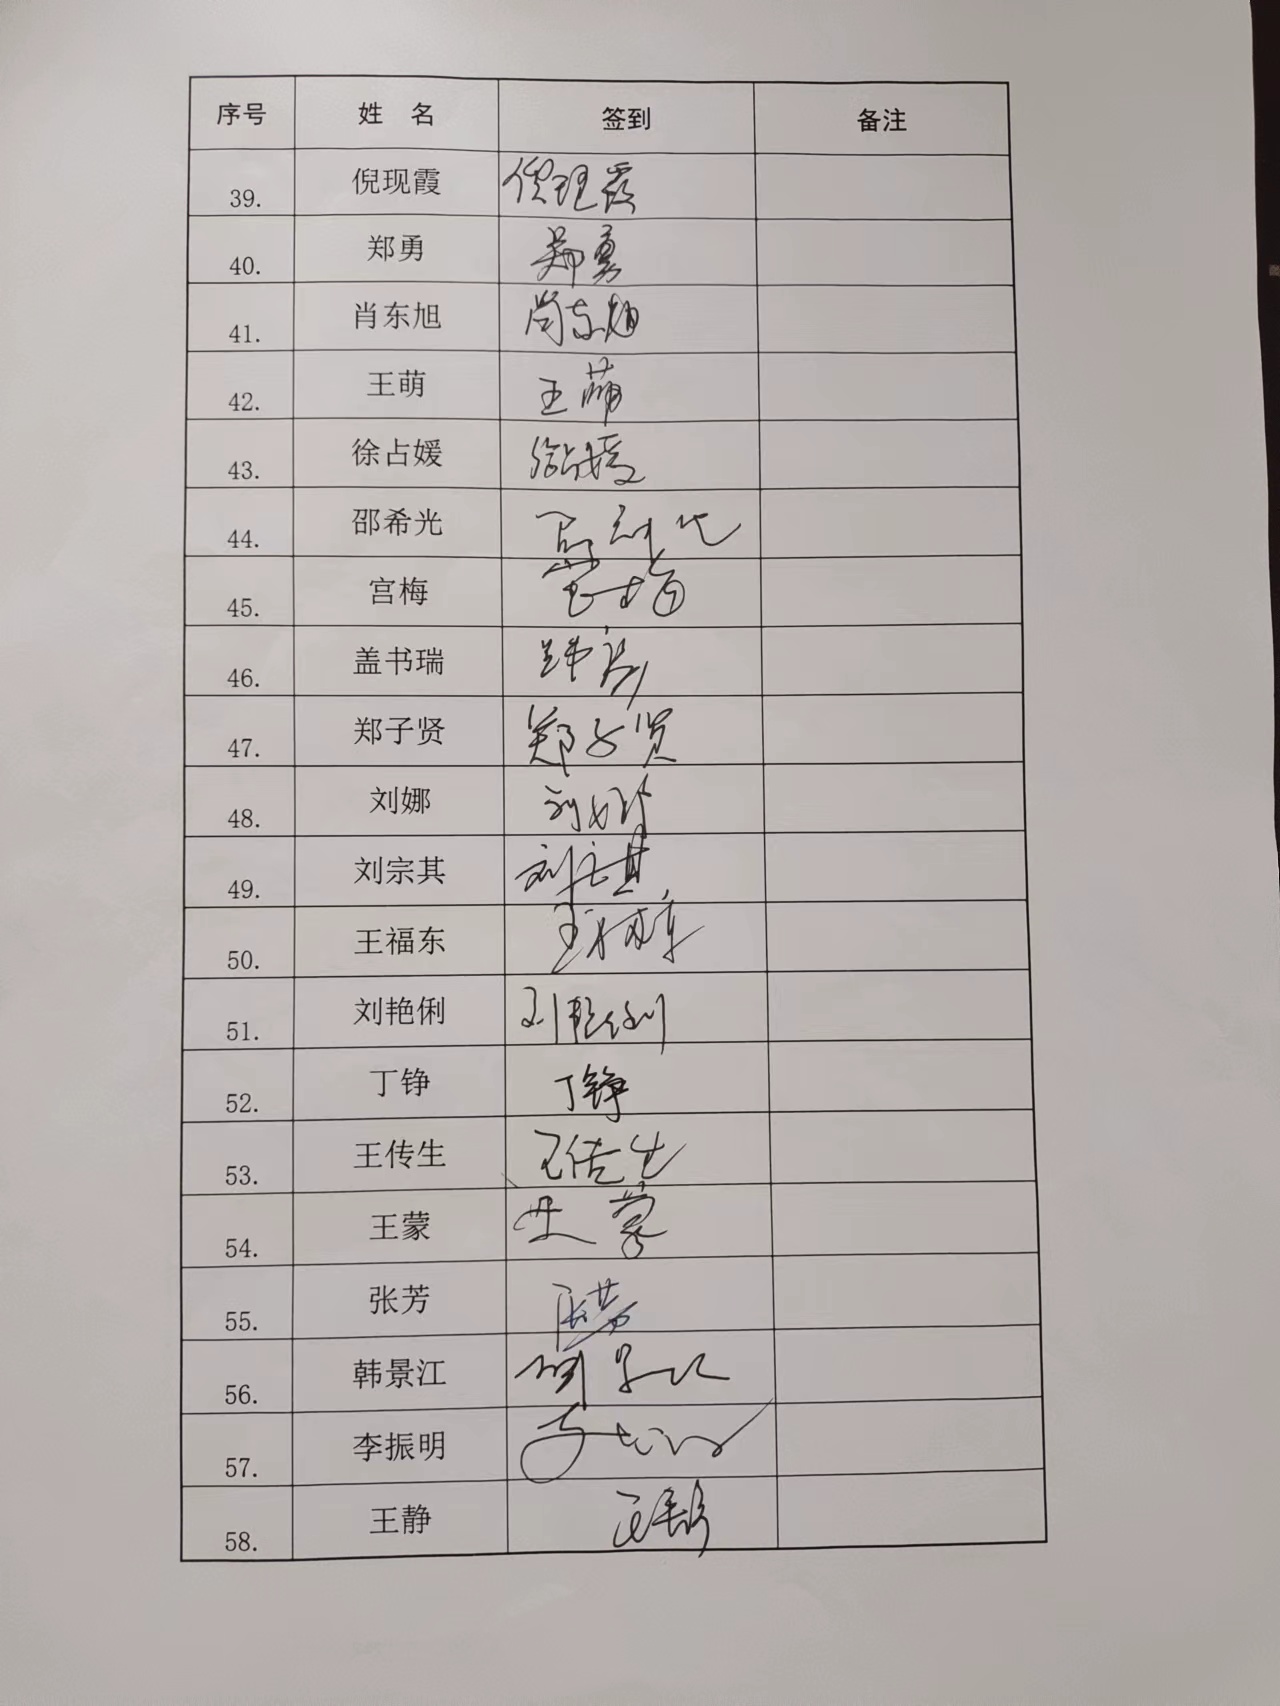 序号 姓 名 签到 备注
39. 倪现霞 倪现霞
40. 郑勇 郑勇
41. 肖东旭 肖东旭
42. 王萌 王萌
43. 徐占媛 徐占媛
44. 邵希光
45. 宫梅 宫梅
46. 盖书瑞
47. 郑子贤 郑子贤
48. 刘娜 刘娜
49. 刘宗其 刘宗其
50. 王福东 王福东
51. 刘艳俐 刘艳俐
52. 丁铮 丁铮
53. 王传生 王传生
54. 王蒙 王蒙
55. 张芳 张芳
56. 韩景江
57. 李振明
58. 王静 王静